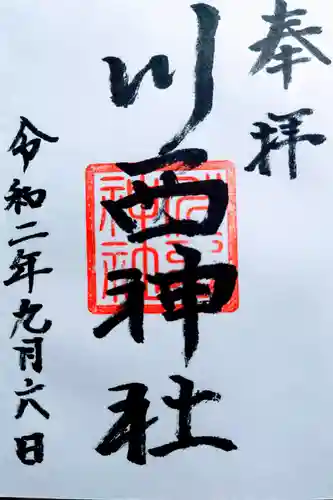 奉拝
川西神社
令和二年九月六日